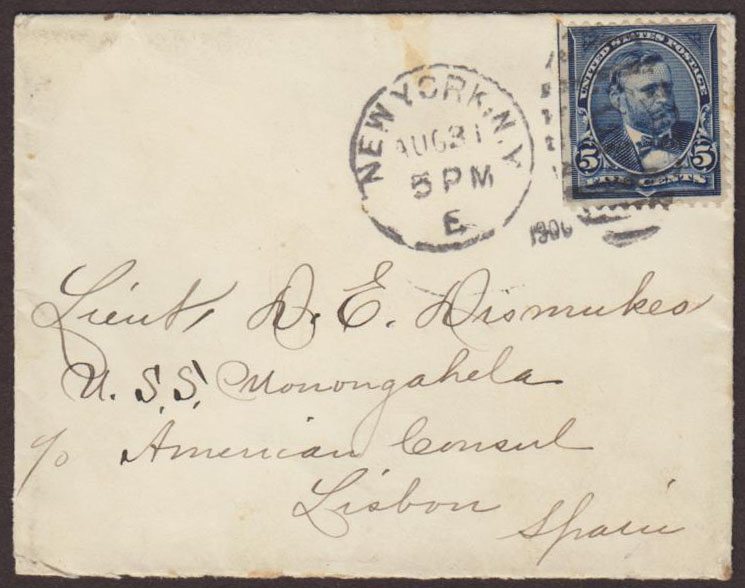 UNITED STATES POSTAGE
5 5
FIVE CENTS
NEW YORK, N.Y.
AUG 31
5 PM
E
Lieut, D. E. Dismukes
U.S.S. Monongahela
c/o American Consul
Lisbon
Spain